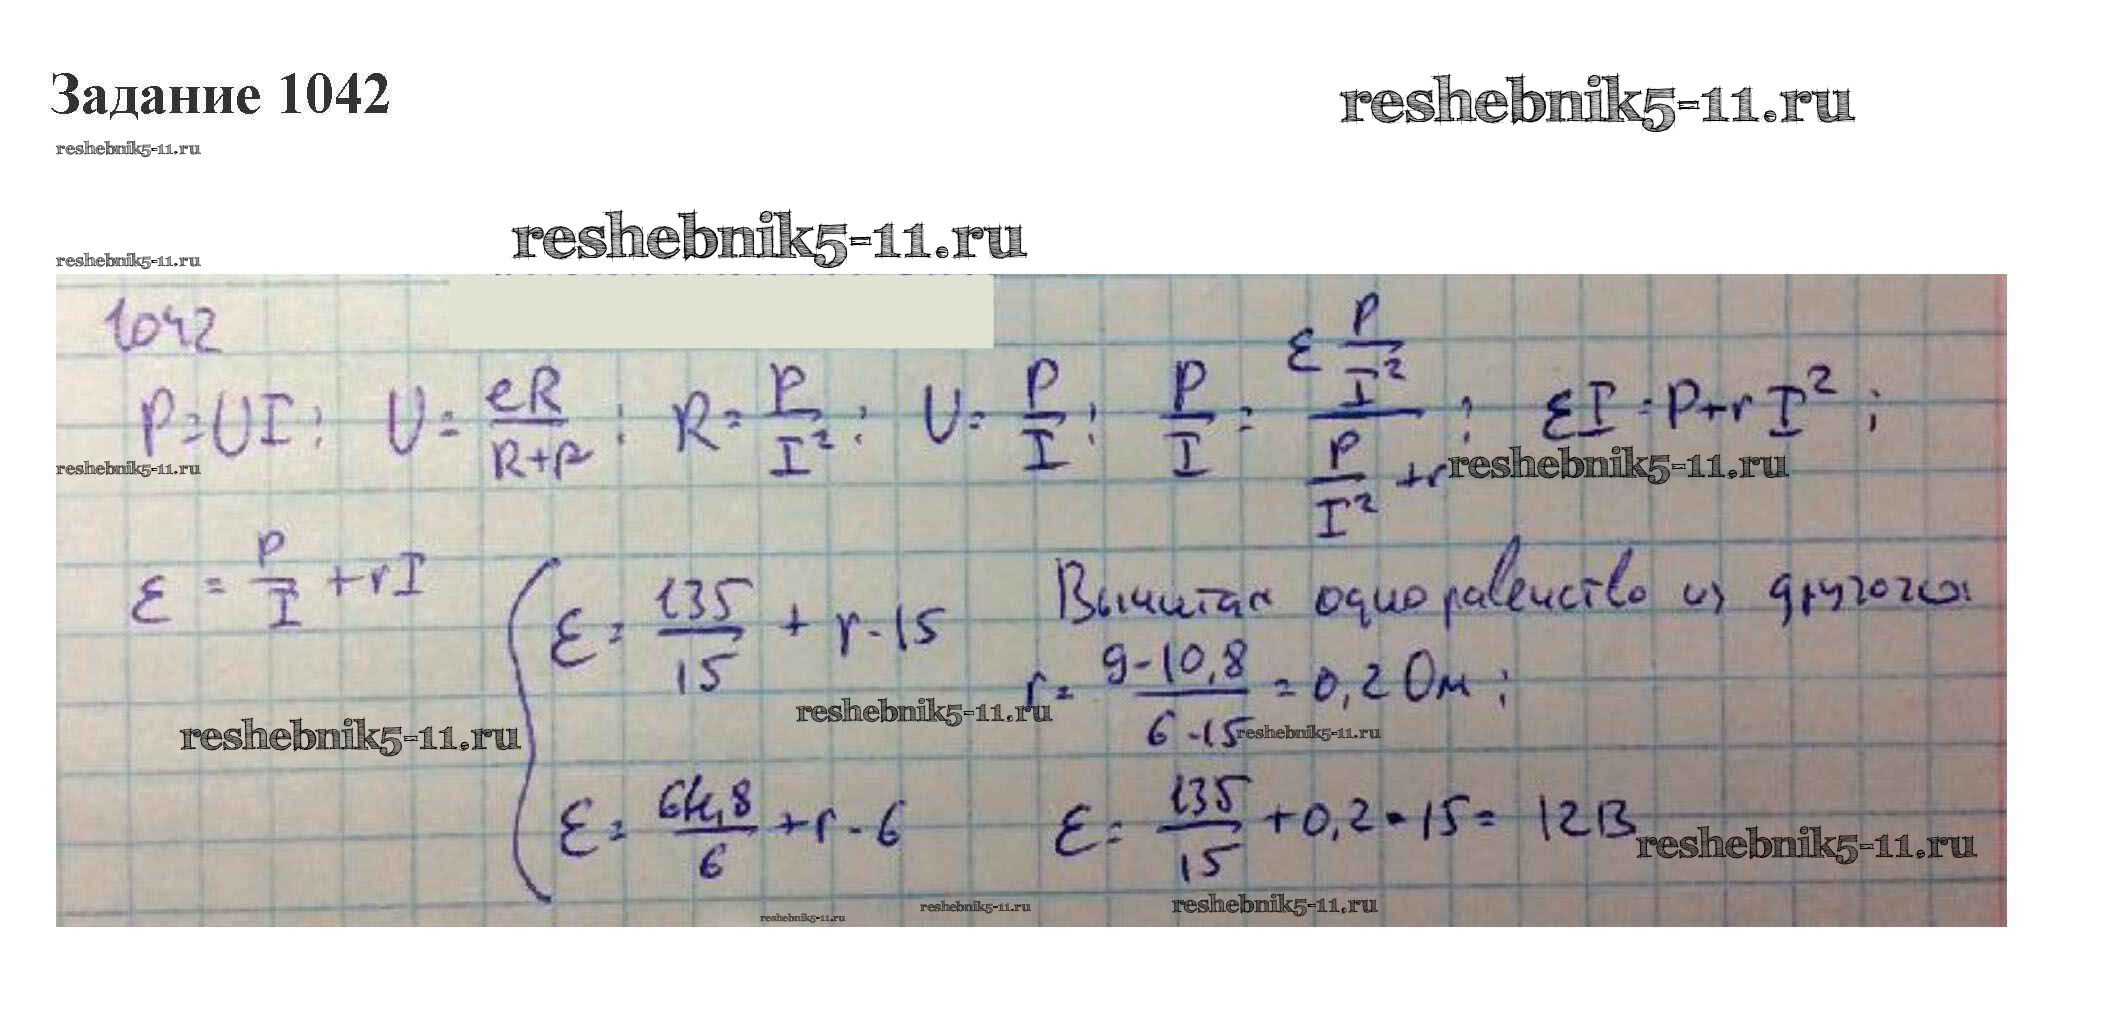 Задание 1042
reshebnik5-11.ru
reshebnik5-11.ru
reshebnik5-11.ru
reshebnik5-11.ru
1042
P=UI; U= eR/(R+r); R= P/I²; U= P/I; P/I = (ε P/I²)/(P/I² + r); εI = P+rI²;
reshebnik5-11.ru
reshebnik5-11.ru
ε = P/I + rI
ε = 135/15 + r·15
Вычитая одно равенство из другого:
r= (9-10,8)/(6-15) = 0,2 Ом;
reshebnik5-11.ru
reshebnik5-11.ru
reshebnik5-11.ru
ε = 64,8/6 + r·6
ε = 135/15 + 0,2·15 = 12В
reshebnik5-11.ru
reshebnik5-11.ru
reshebnik5-11.ru
reshebnik5-11.ru